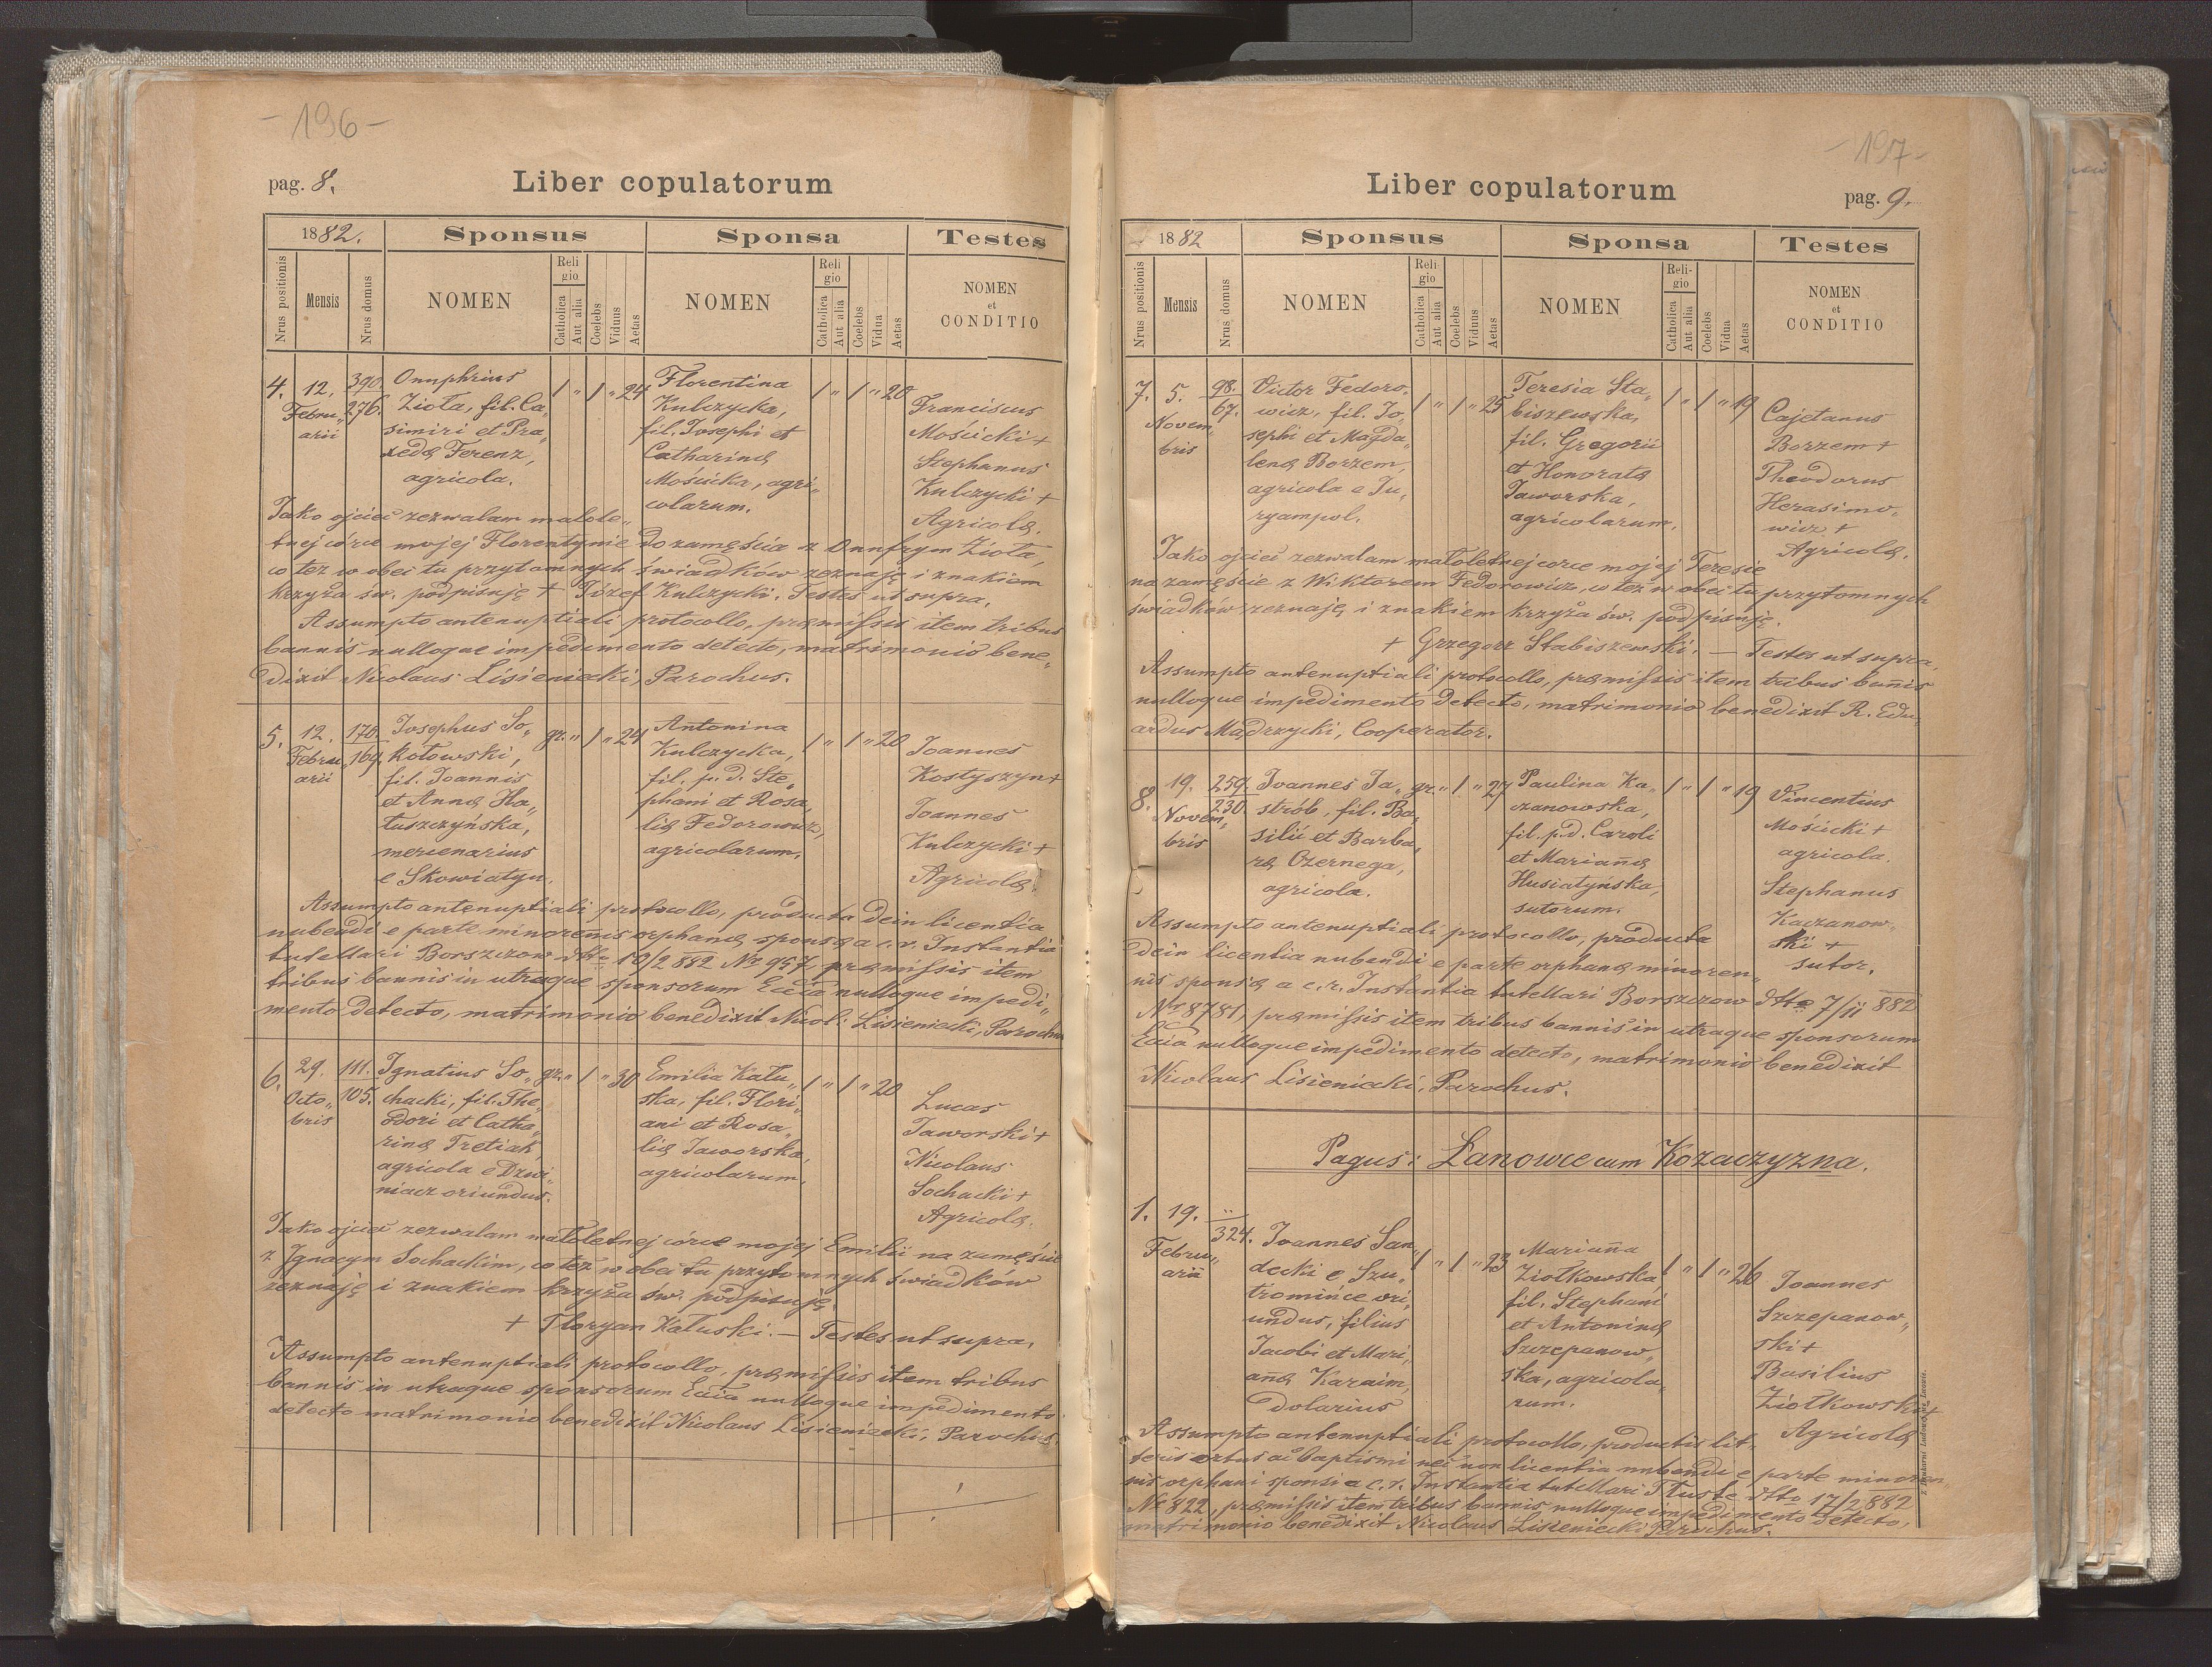 - 196 -
pag. 8.
Liber copulatorum
1882.
Sponsus
Sponsa
Testes
Nrus positionis
Mensis
Nrus domus
NOMEN
Religio
Catholica
Aut alia
Coelebs
Viduus
Aetas
NOMEN
Religio
Catholica
Aut alia
Coelebs
Vidua
Aetas
NOMEN
et
CONDITIO
4.
12.
Febru„
arii
390.
276.
Onuphrius
Ziota, fil. Ca„
simiri et Pra„
xedæ Ferenz,
agricola.
1 " 1 " 24
Florentina
Kulczycka,
fil. Josephi et
Catharinæ
Mościcka, agri„
colarum.
1 " 1 " 20
Franciscus
Mościcki +
Stephanus
Kulczycki +
Agricolæ.
Jako ojciec zezwalam małole„
tnej córce mojej Florentynie do zamęścia z Onufrym Ziota,
co też w obec tu przytomnych świadków zeznaję i znakiem
krzyża św. podpisuję + Józef Kulczycki. Testes ut supra.
Assumpto antenuptiali protocollo, præmissis item tribus
bannis nulloque impedimento detecto, matrimonio bene„
dixit Nicolaus Lisieniecki, Parochus.
5.
12.
Febru„
arii
170.
169.
Josephus So„
kołowski,
fil. Joannis
et Annæ Ha„
łuszczyńska,
mercenarius
e Skowiatyn.
gr. " 1 " 24
Antonina
Kulczycka,
fil. p. d. Ste„
phani et Rosa„
liæ Fedorowicz,
agricolarum.
1 " 1 " 20
Joannes
Kostyszyn +
Joannes
Kulczycki +
Agricolæ.
Assumpto antenuptiali protocollo, producta dein licentia
nubendi e parte minorennis orphanæ sponsæ a c. r. Instantia
tutellari Borszczow dtto 10/2 882 No 957, præmissis item
tribus bannis in utraque sponsorum Eccia nulloque impedi„
mento detecto, matrimonio benedixit Nicol: Lisieniecki, Parochus
6.
29.
Octo„
bris
111.
105.
Ignatius So„
chacki, fil. The„
odori et Catha„
rinæ Tretiak,
agricola e Dzwi„
niacz oriundus.
gr. " 1 " 30
Emilia Kału„
ska, fil. Flori„
ani et Rosa„
liæ Jaworska,
agricolarum.
1 " 1 " 20
Lucas
Jaworski +
Nicolaus
Sochacki +
Agricolæ.
Jako ojciec zezwalam małoletnej córce mojej Emilii na zamęście
z Ignacym Sochackim, co też w obec tu przytomnych świadków
zeznaję i znakiem krzyża św. podpisuję.
+ Floryan Kałuski. — Testes ut supra.
Assumpto antenuptiali protocollo, præmissis item tribus
bannis in utraque sponsorum Eccia nulloque impedimento
detecto matrimonio benedixit Nicolaus Lisieniecki, Parochus.
- 197 -
Liber copulatorum
pag. 9.
1882
Sponsus
Sponsa
Testes
Nrus positionis
Mensis
Nrus domus
NOMEN
Religio
Catholica
Aut alia
Coelebs
Viduus
Aetas
NOMEN
Religio
Catholica
Aut alia
Coelebs
Vidua
Aetas
NOMEN
et
CONDITIO
7.
5.
Novem„
bris
98.
67.
Victor Fedoro„
wicz, fil. Jo„
sephi et Magda„
lenæ Borzem,
agricola e Ju„
ryampol.
1 " 1 " 25
Teresia Sta„
biszewska,
fil. Gregorii
et Honoratæ
Jaworska,
agricolarum.
1 " 1 " 19
Cajetanus
Borzem +
Theodorus
Herasimo„
wicz +
Agricolæ.
Jako ojciec zezwalam małoletnej corce mojej Teresie
na zamęście z Wiktorem Fedorowicz, co też w obec tu przytomnych
świadków zeznaję i znakiem krzyża św. podpisuję.
+ Grzegorz Stabiszewski. — Testes ut supra.
Assumpto antenuptiali protocollo, præmissis item tribus bannis
nulloque impedimento detecto, matrimonio benedixit R. Edu„
ardus Mądrzycki, Cooperator.
8.
19.
Novem„
bris
259.
230.
Joannes Ja„
strób, fil. Ba„
silii et Barba„
ræ Czernega,
agricola.
gr. " 1 " 27
Paulina Ka„
czanowska,
fil. p. d. Caroli
et Mariannæ
Husiatyńska,
sutorum.
1 " 1 " 19
Vincentius
Mościcki +
agricola.
Stephanus
Kaczanow„
ski +
sutor.
Assumpto antenuptiali protocollo, producta
dein licentia nubendi e parte orphanæ minoren„
nis sponsæ a c. r. Instantia tutellari Borszczow dtto 7/11 882
No 8781, præmissis item tribus bannis in utraque sponsorum
Eccia nulloque impedimento detecto, matrimonio benedixit
Nicolaus Lisieniecki, Parochus.
Pagus: Łanowce cum Kozaczyzna.
1.
19.
Febru„
arii
"
324.
Joannes San„
decki e Szu„
tromińce ori„
undus, filius
Jacobi et Mari„
annæ Karaim,
dolarius
1 " 1 " 23
Marianna
Ziołkowska
fil. Stephani
et Antoninæ
Szczepanow„
ska, agricola„
rum.
1 " 1 " 26
Joannes
Szczepanow„
ski +
Basilius
Ziołkowski +
Agricolæ
Assumpto antenuptiali protocollo, productis lit„
teris ortus ac baptismi nec non licentia nubendi e parte minoren
nis orphani sponsi a c. r. Instantia tutellari Tłuste dtto 17/2 882
No 822, præmissis item tribus bannis nulloque impedimento detecto,
matrimonio benedixit Nicolaus Lisieniecki Parochus.